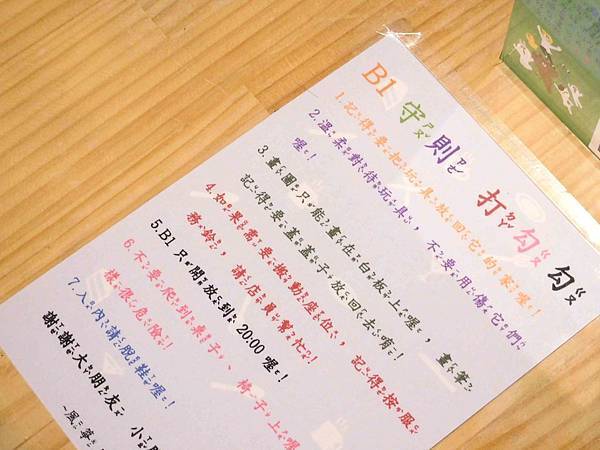 B1 守則 打勾勾
1. 記得要把玩具放回它的家喔!
2. 溫柔對待玩具, 不要用傷它們
喔!
3. 畫圖只能畫在白板上喔, 畫筆
記得要蓋蓋子放回去唷!
4. 如果需要搬動座位, 記得按服
務鈴, 請店員幫忙!
5. B1 只開放到 20:00 喔!
6. 不要爬到桌子、椅子上喔
樣很危險!
7. 入內請脫鞋喔!
謝謝大朋友 小
~風箏